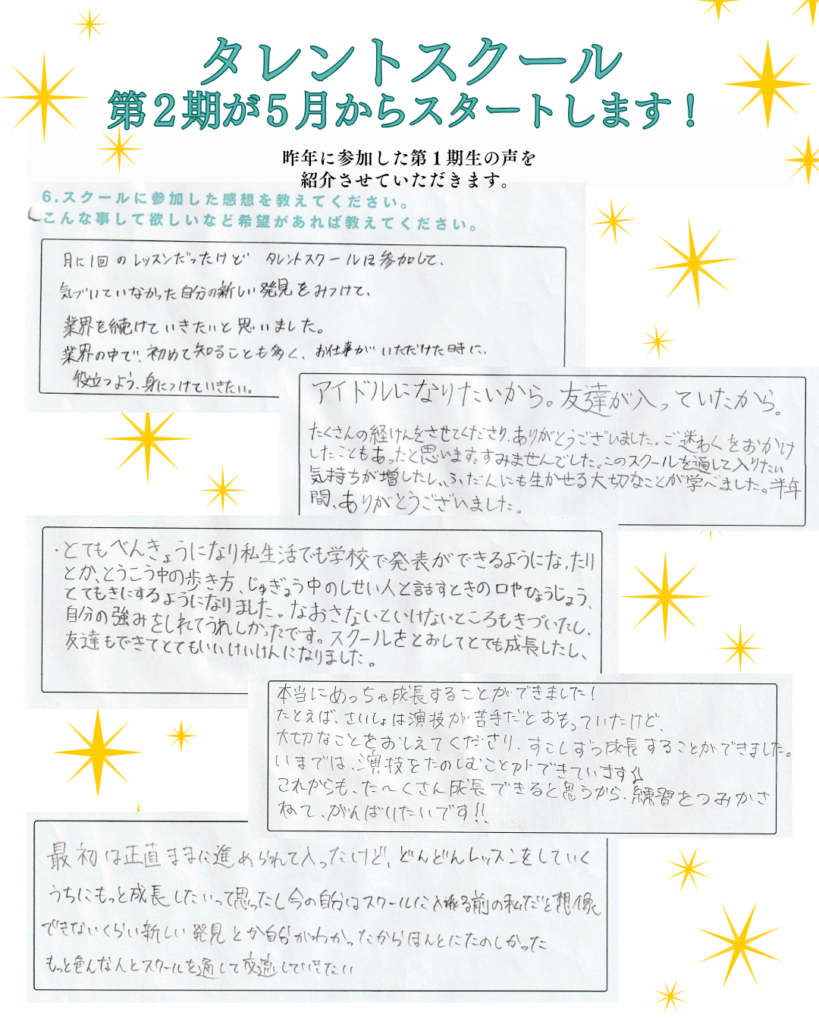 タレントスクール
第２期が５月からスタートします！
昨年に参加した第１期生の声を
紹介させていただきます。
6.スクールに参加した感想を教えてください。
こんな事して欲しいなど希望があれば教えてください。
月に1回のレッスンだったけど タレントスクールに参加して、
気づいていなかった自分の新しい発見をみつけて、
業界を続けていきたいと思いました。
業界の中で、初めて知ることも多く、お仕事がいただけた時に、
役立つよう、身につけていきたい。
アイドルになりたいから。友達が入っていたから。
たくさんの経けんをさせてくださり、ありがとうございました。ご迷わくをおかけ
したこともあったと思います。すみませんでした。このスクールを通して入りたい
気持ちが増したし、ふだんにも生かせる大切なことが学べました。半年
間、ありがとうございました。
・とてもべんきょうになり私生活でも学校で発表ができるようになったり
とか、とうこう中の歩き方、じゅぎょう中のしせい人と話すときの口やひょうじょう、
とてもきにするようになりました。なおさないといけないところもきづいたし、
自分の強みをしれてうれしかったです。スクールをとおしてとても成長したし、
友達もできてとてもいいけいけんになりました。
本当にめっちゃ成長することができました！
たとえば、さいしょは演技が苦手だとおもっていたけど、
大切なことをおしえてくださり、すこしずつ成長することができました。
いまでは、演技をたのしむことができています
これからも、た〜くさん成長できると思うから、練習をつみかさ
ねて、がんばりたいです!!
最初は正直ままに進められて入ったけど、どんどんレッスンをしていく
うちにもっと成長したいって思ったし今の自分はスクールに入れる前の私だと想像
できないくらい新しい発見とか自分がわかったからほんとにたのしかった
もっと色んな人とスクールを通して交流していきたい